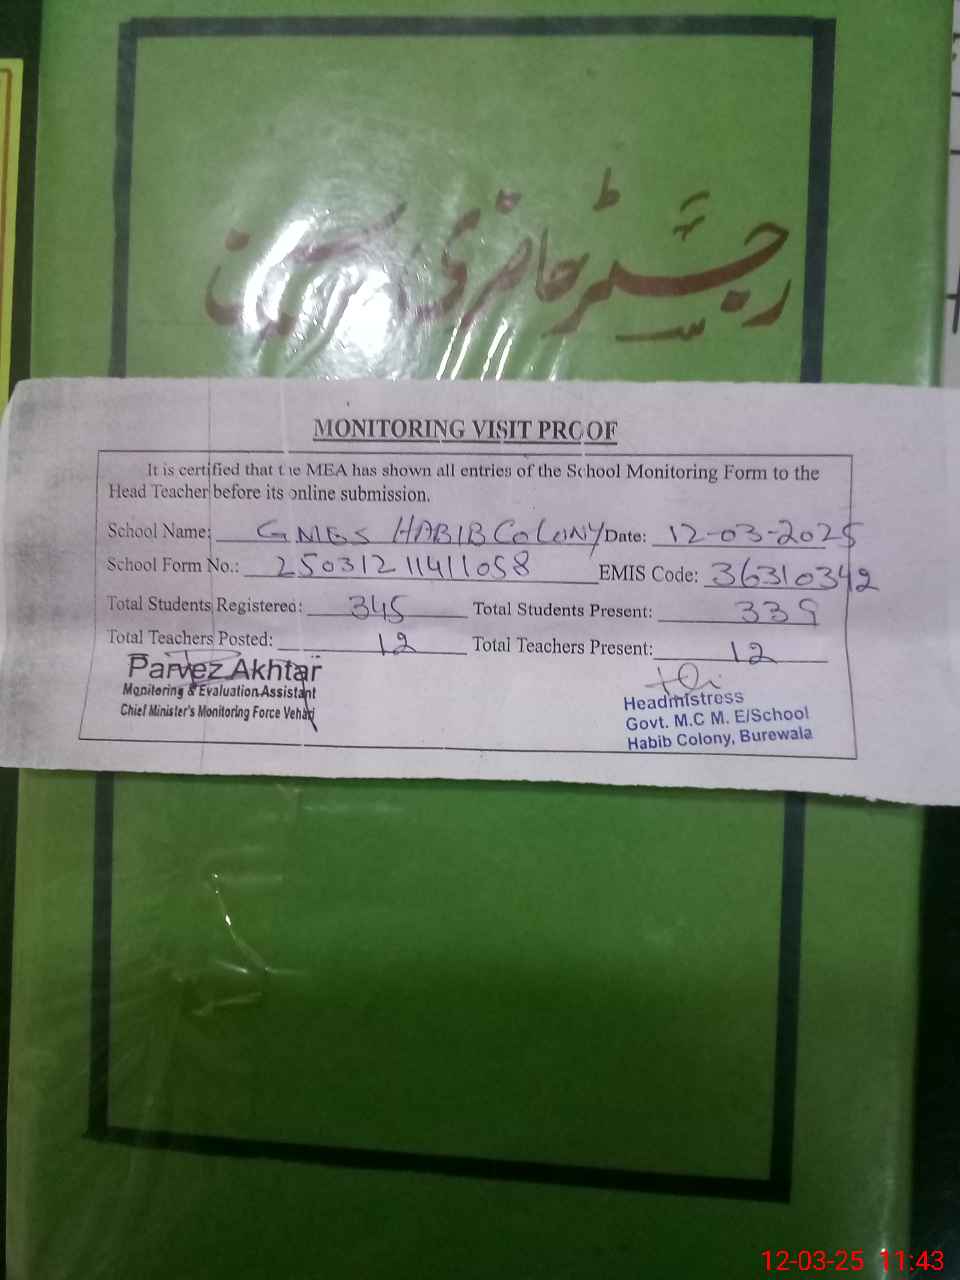 رجسٹر حاضری مدرسین
MONITORING VISIT PROOF
It is certified that the MEA has shown all entries of the School Monitoring Form to the
Head Teacher before its online submission.
School Name: GMES HABIB COLONY Date: 12-03-2025
School Form No.: 25031211411058 EMIS Code: 36310342
Total Students Registered: 345 Total Students Present: 339
Total Teachers Posted: 12 Total Teachers Present: 12
Parvez Akhtar
Monitoring & Evaluation Assistant
Chief Minister's Monitoring Force Vehari
Headmistress
Govt. M.C M. E/School
Habib Colony, Burewala
12-03-25 11:43